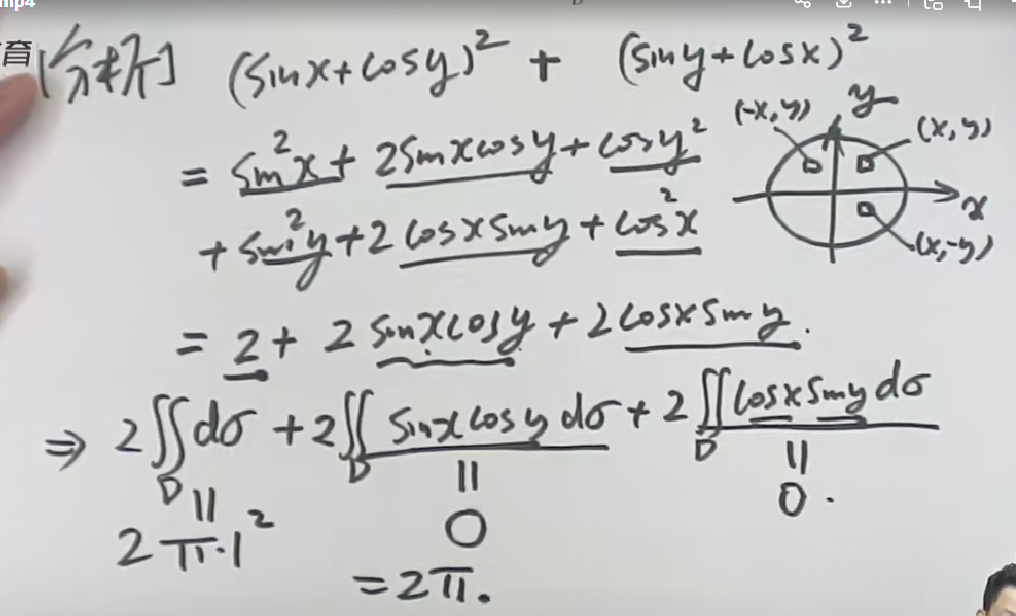 mp4
育
[分析] (sinx+cosy)² + (siny+cosx)²
= sin²x + 2sinxcosy + cosy²
+ sin²y + 2cosxsiny + cos²x
= 2 + 2sinxcosy + 2cosxsiny.
⇒ 2∬dσ + 2∬sinxcosydσ + 2∬cosxsinydσ
D D D
|| || ||
2π·1² 0 0.
= 2π.
(-x,y) y (x,y)
x
(x,-y)